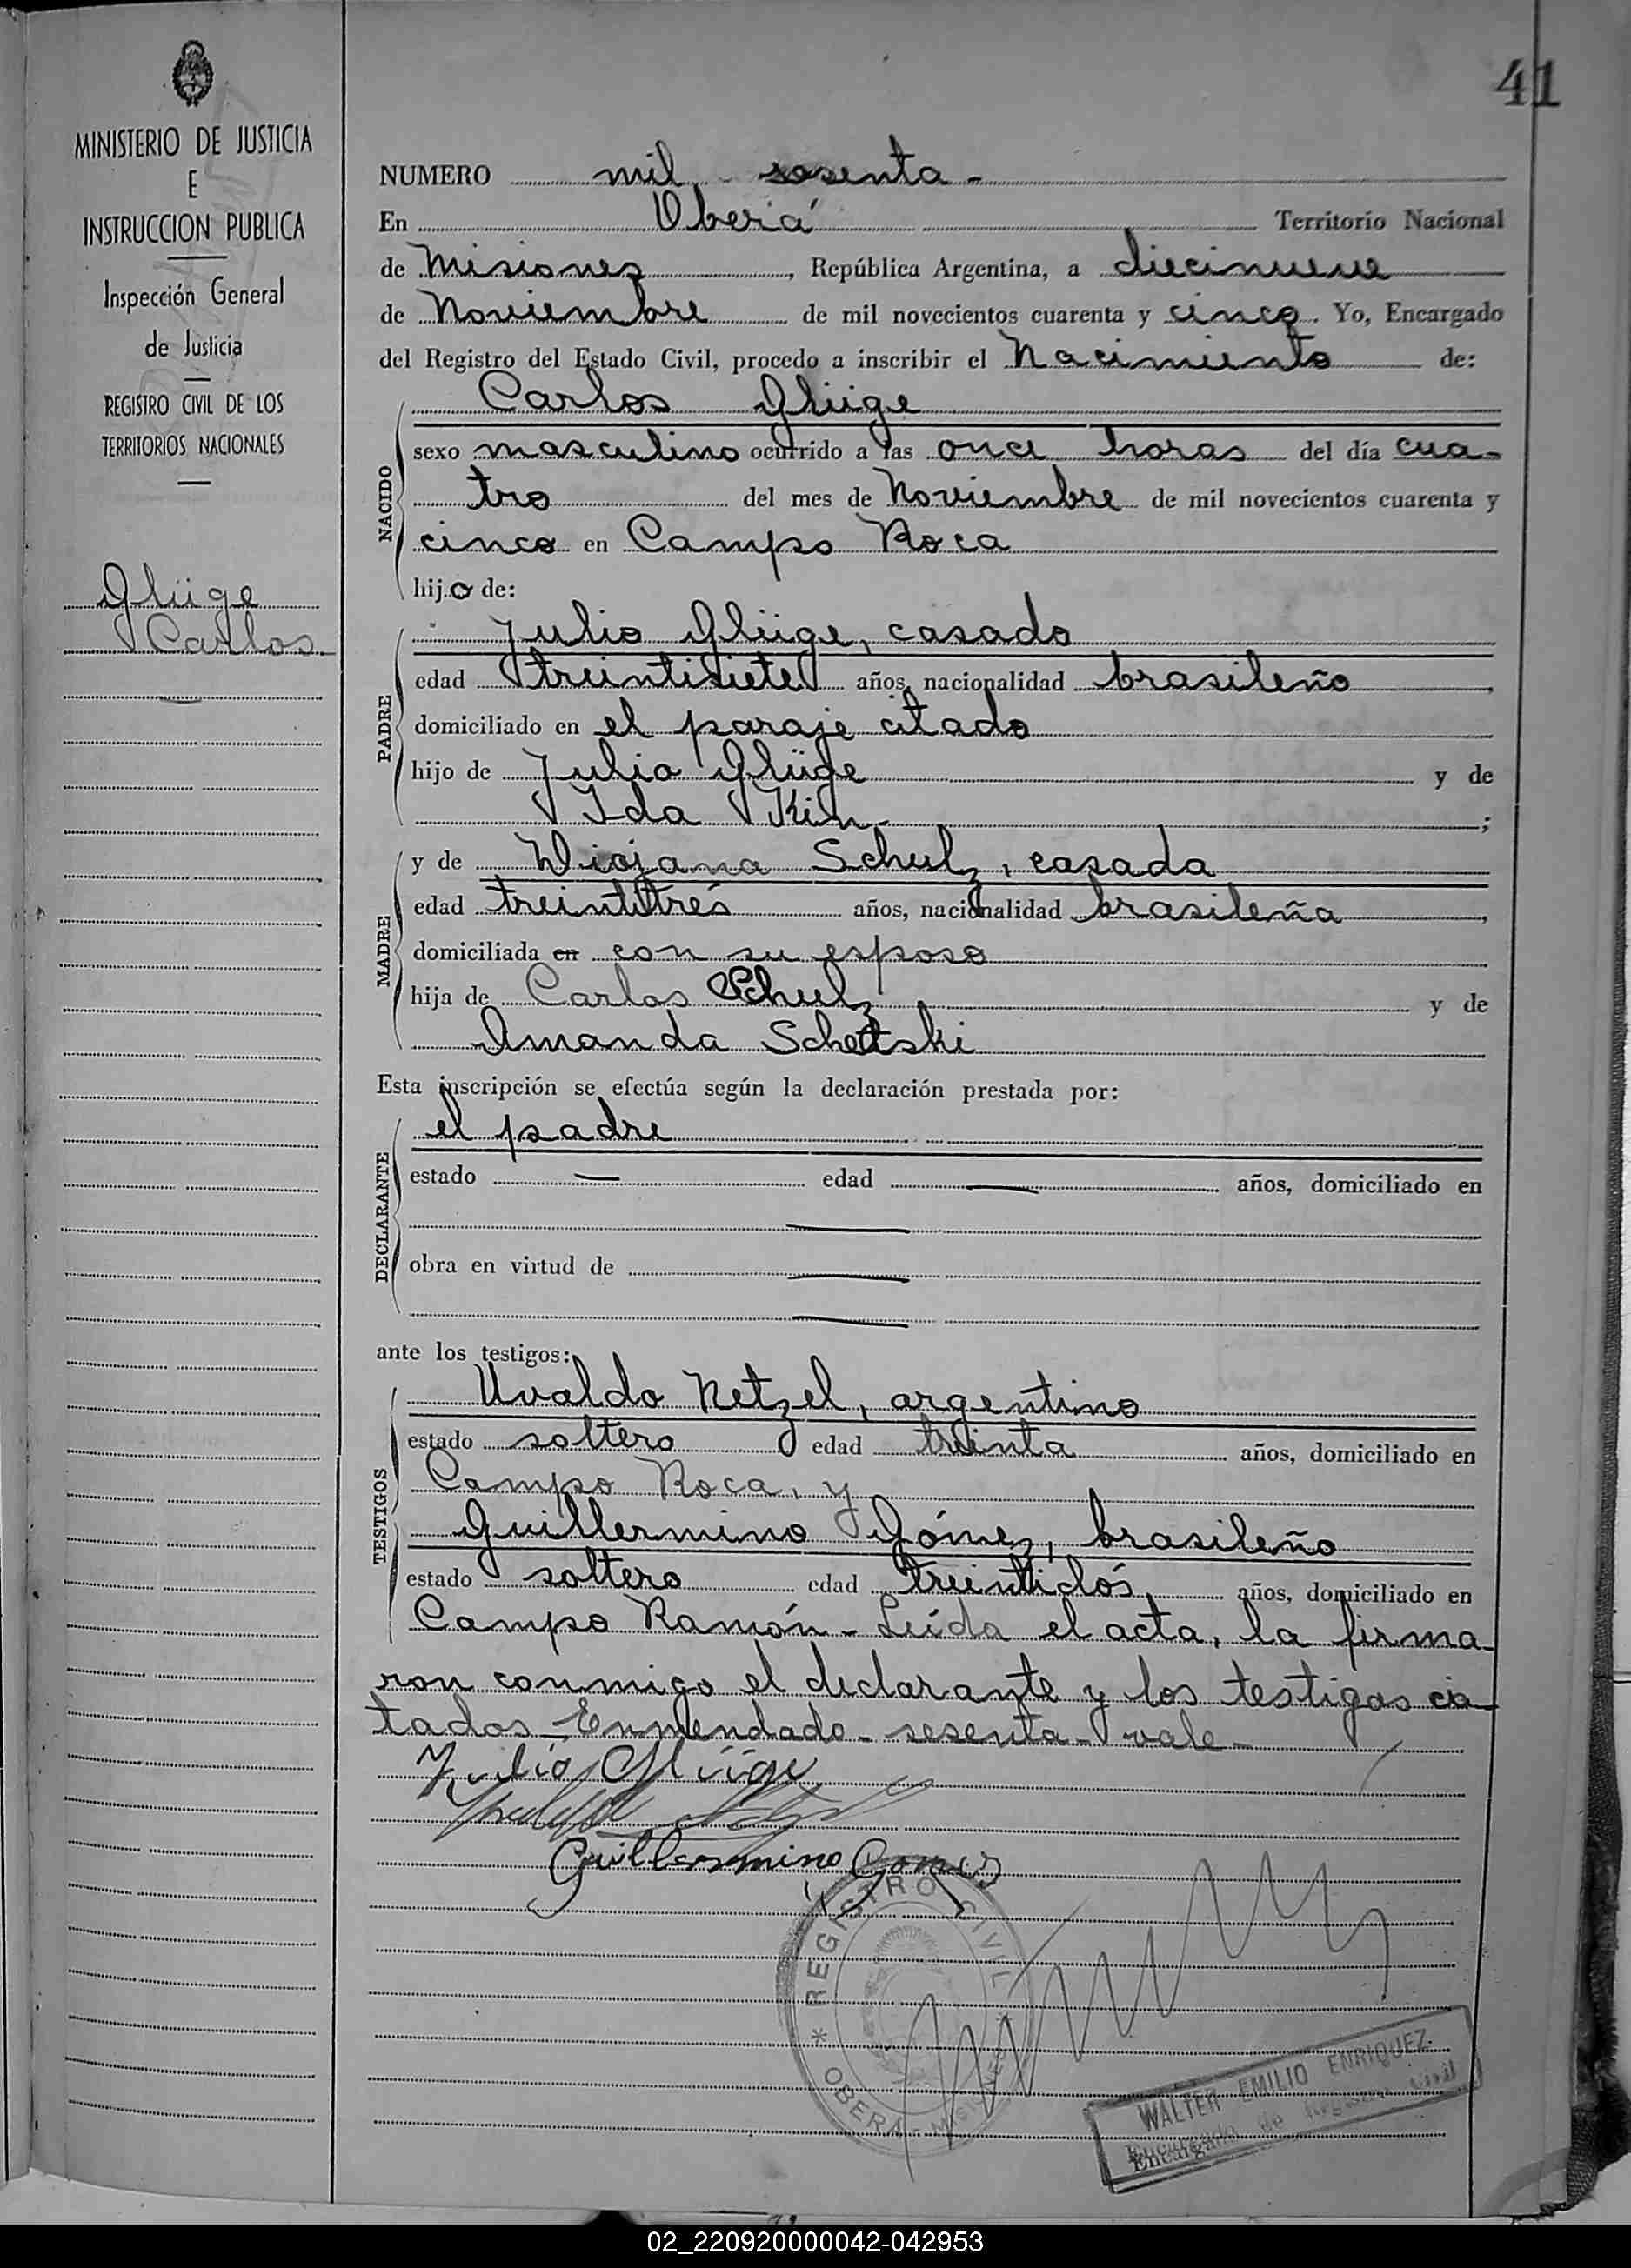 41
MINISTERIO DE JUSTICIA
E
INSTRUCCION PUBLICA
Inspección General
de Justicia
REGISTRO CIVIL DE LOS
TERRITORIOS NACIONALES
Glüge
Carlos.
NUMERO mil sesenta -
En Oberá Territorio Nacional
de Misiones, República Argentina, a diecinueve
de Noviembre de mil novecientos cuarenta y cinco. Yo, Encargado
del Registro del Estado Civil, procedo a inscribir el Nacimiento de:
NACIDO
Carlos Glüge
sexo masculino ocurrido a las once horas del día cua-
tro del mes de Noviembre de mil novecientos cuarenta y
cinco en Campo Roca
hijo de:
PADRE
Julio Glüge, casado
edad treintisiete años, nacionalidad brasileño
domiciliado en el paraje citado
hijo de Julio Glüge y de
Ida Kin- ;
MADRE
y de Schulz, casada
edad treintitrés años, nacionalidad brasileña
domiciliada en con su esposo
hija de Carlos Schulz y de
Amanda Schetski
Esta inscripción se efectúa según la declaración prestada por:
DECLARANTE
el padre
estado — edad — años, domiciliado en
—
obra en virtud de —
—
ante los testigos:
TESTIGOS
Uvaldo Netzel, argentino
estado soltero edad treinta años, domiciliado en
Campo Roca, y
Guillermino Gómez, brasileño
estado soltero edad treintidós, años, domiciliado en
Campo Ramón - Leída el acta, la firma-
ron conmigo el declarante y los testigos ci-
tados - Enmendado - sesenta - vale -
Julio Glüge
Guillermino Gomes
* REGISTRO CIVIL *
OBERÁ - MISIONES
WALTER EMILIO ENRIQUEZ
Encargado de Registro Civil
02_220920000042-042953